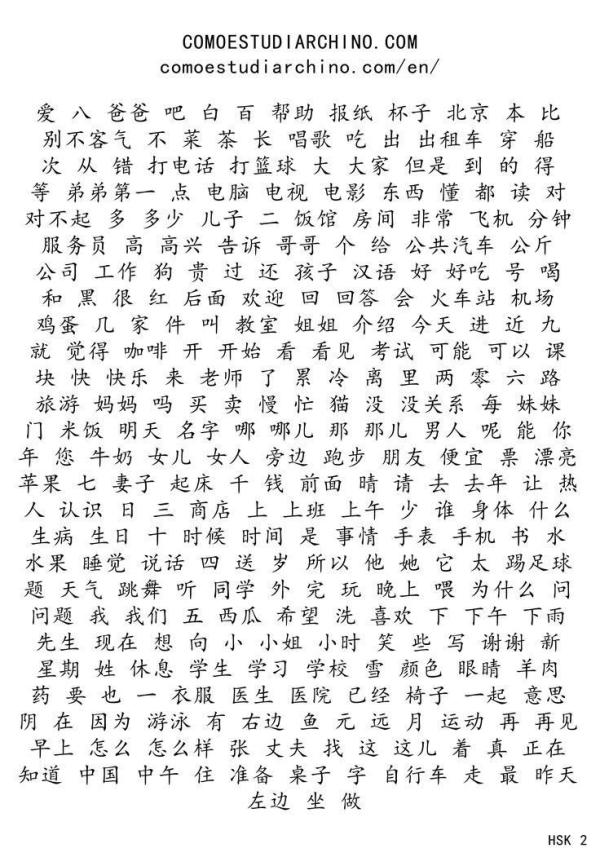 COMOESTUDIARCHINO.COM
comoestudiarchino.com/en/
爱 八 爸爸 吧 白 百 帮助 报纸 杯子 北京 本 比
别不客气 不 菜 茶 长 唱歌 吃 出 出租车 穿 船
次 从 错 打电话 打篮球 大 大家 但是 到 的 得
等 弟弟第一 点 电脑 电视 电影 东西 懂 都 读 对
对不起 多 多少 儿子 二 饭馆 房间 非常 飞机 分钟
服务员 高 高兴 告诉 哥哥 个 给 公共汽车 公斤
公司 工作 狗 贵 过 还 孩子 汉语 好 好吃 号 喝
和 黑 很 红 后面 欢迎 回 回答 会 火车站 机场
鸡蛋 几 家 件 叫 教室 姐姐 介绍 今天 进 近 九
就 觉得 咖啡 开 开始 看 看见 考试 可能 可以 课
块 快 快乐 来 老师 了 累 冷 离 里 两 零 六 路
旅游 妈妈 吗 买 卖 慢 忙 猫 没 没关系 每 妹妹
门 米饭 明天 名字 哪 哪儿 那 那儿 男人 呢 能 你
年 您 牛奶 女儿 女人 旁边 跑步 朋友 便宜 票 漂亮
苹果 七 妻子 起床 千 钱 前面 晴 请 去 去年 让 热
人 认识 日 三 商店 上 上班 上午 少 谁 身体 什么
生病 生日 十 时候 时间 是 事情 手表 手机 书 水
水果 睡觉 说话 四 送 岁 所以 他 她 它 太 踢足球
题 天气 跳舞 听 同学 外 完 玩 晚上 喂 为什么 问
问题 我 我们 五 西瓜 希望 洗 喜欢 下 下午 下雨
先生 现在 想 向 小 小姐 小时 笑 些 写 谢谢 新
星期 姓 休息 学生 学习 学校 雪 颜色 眼睛 羊肉
药 要 也 一 衣服 医生 医院 已经 椅子 一起 意思
阴 在 因为 游泳 有 右边 鱼 元 远 月 运动 再 再见
早上 怎么 怎么样 张 丈夫 找 这 这儿 着 真 正在
知道 中国 中午 住 准备 桌子 字 自行车 走 最 昨天
左边 坐 做
HSK 2